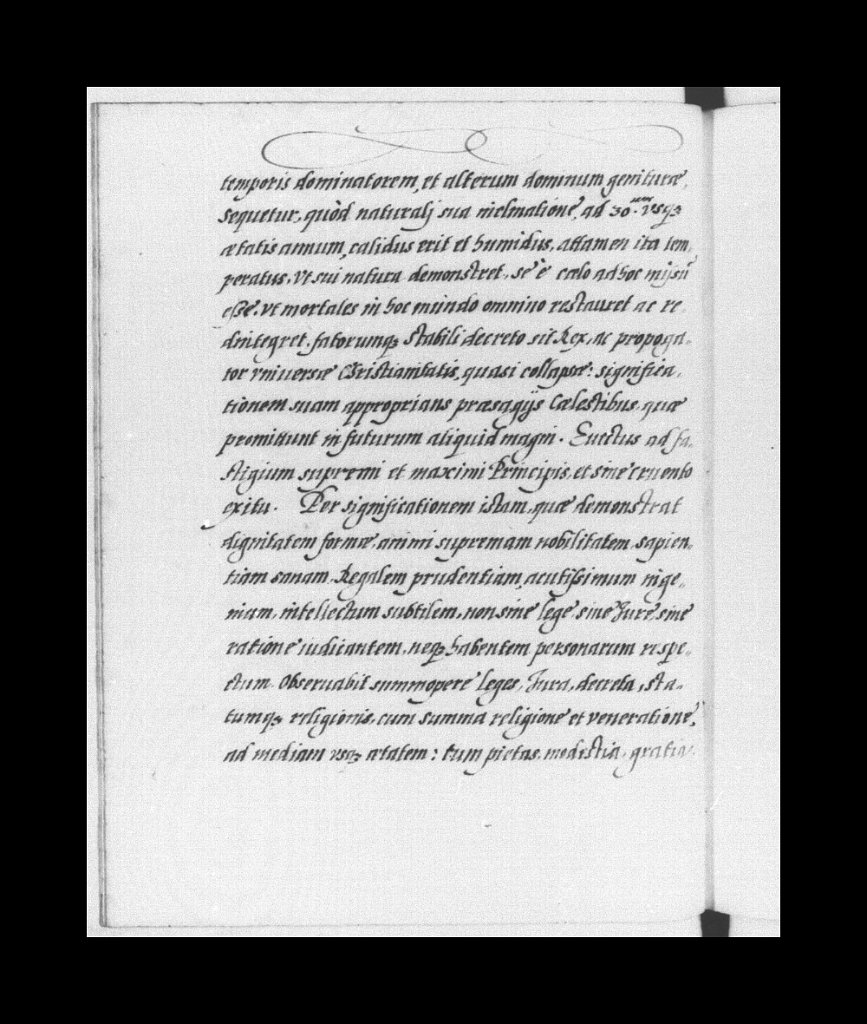 temporis dominatorem, et alterum dominum genituræ,
sequetur, quòd naturalj sua inclinatione, ad 30.um vsq3
ætatis annum, calidus erit et humidus, attamen ita tem,
peratus, Vt sui natura demonstret, se è cælo ad hoc mißū
eße, vt mortales in hoc mundo omnino restauret ac re
dintegret, fatorumq3 stabili decreto sit Rex, ac propaga,,
tor vniuersæ Christianitatis, quasi collapsæ: significa,
tionem suam approprians præsagijs Cælestibus, quæ
promittunt in futurum aliquid magni. Euectus ad fa,
stigium supremi et maximi Principis, et sine cruento
exitu. Per significationem istam, quæ demonstrat
dignitatem formæ, animi supremam nobilitatem, sapien,
tiam sanam, Regalem prudentiam, acutißimum inge,,
nium, intellectum subtilem, non sine lege, sine Jure, sine
ratione iudicantem, neq3 habentem personarum respe,,
ctum. Obseruabit summopere leges, Jura, decreta, sta,,
tumq3 religionis, cum summa religione et veneratione,
ad mediam vsq3 ætatem: tum pietas, modestia, gratia